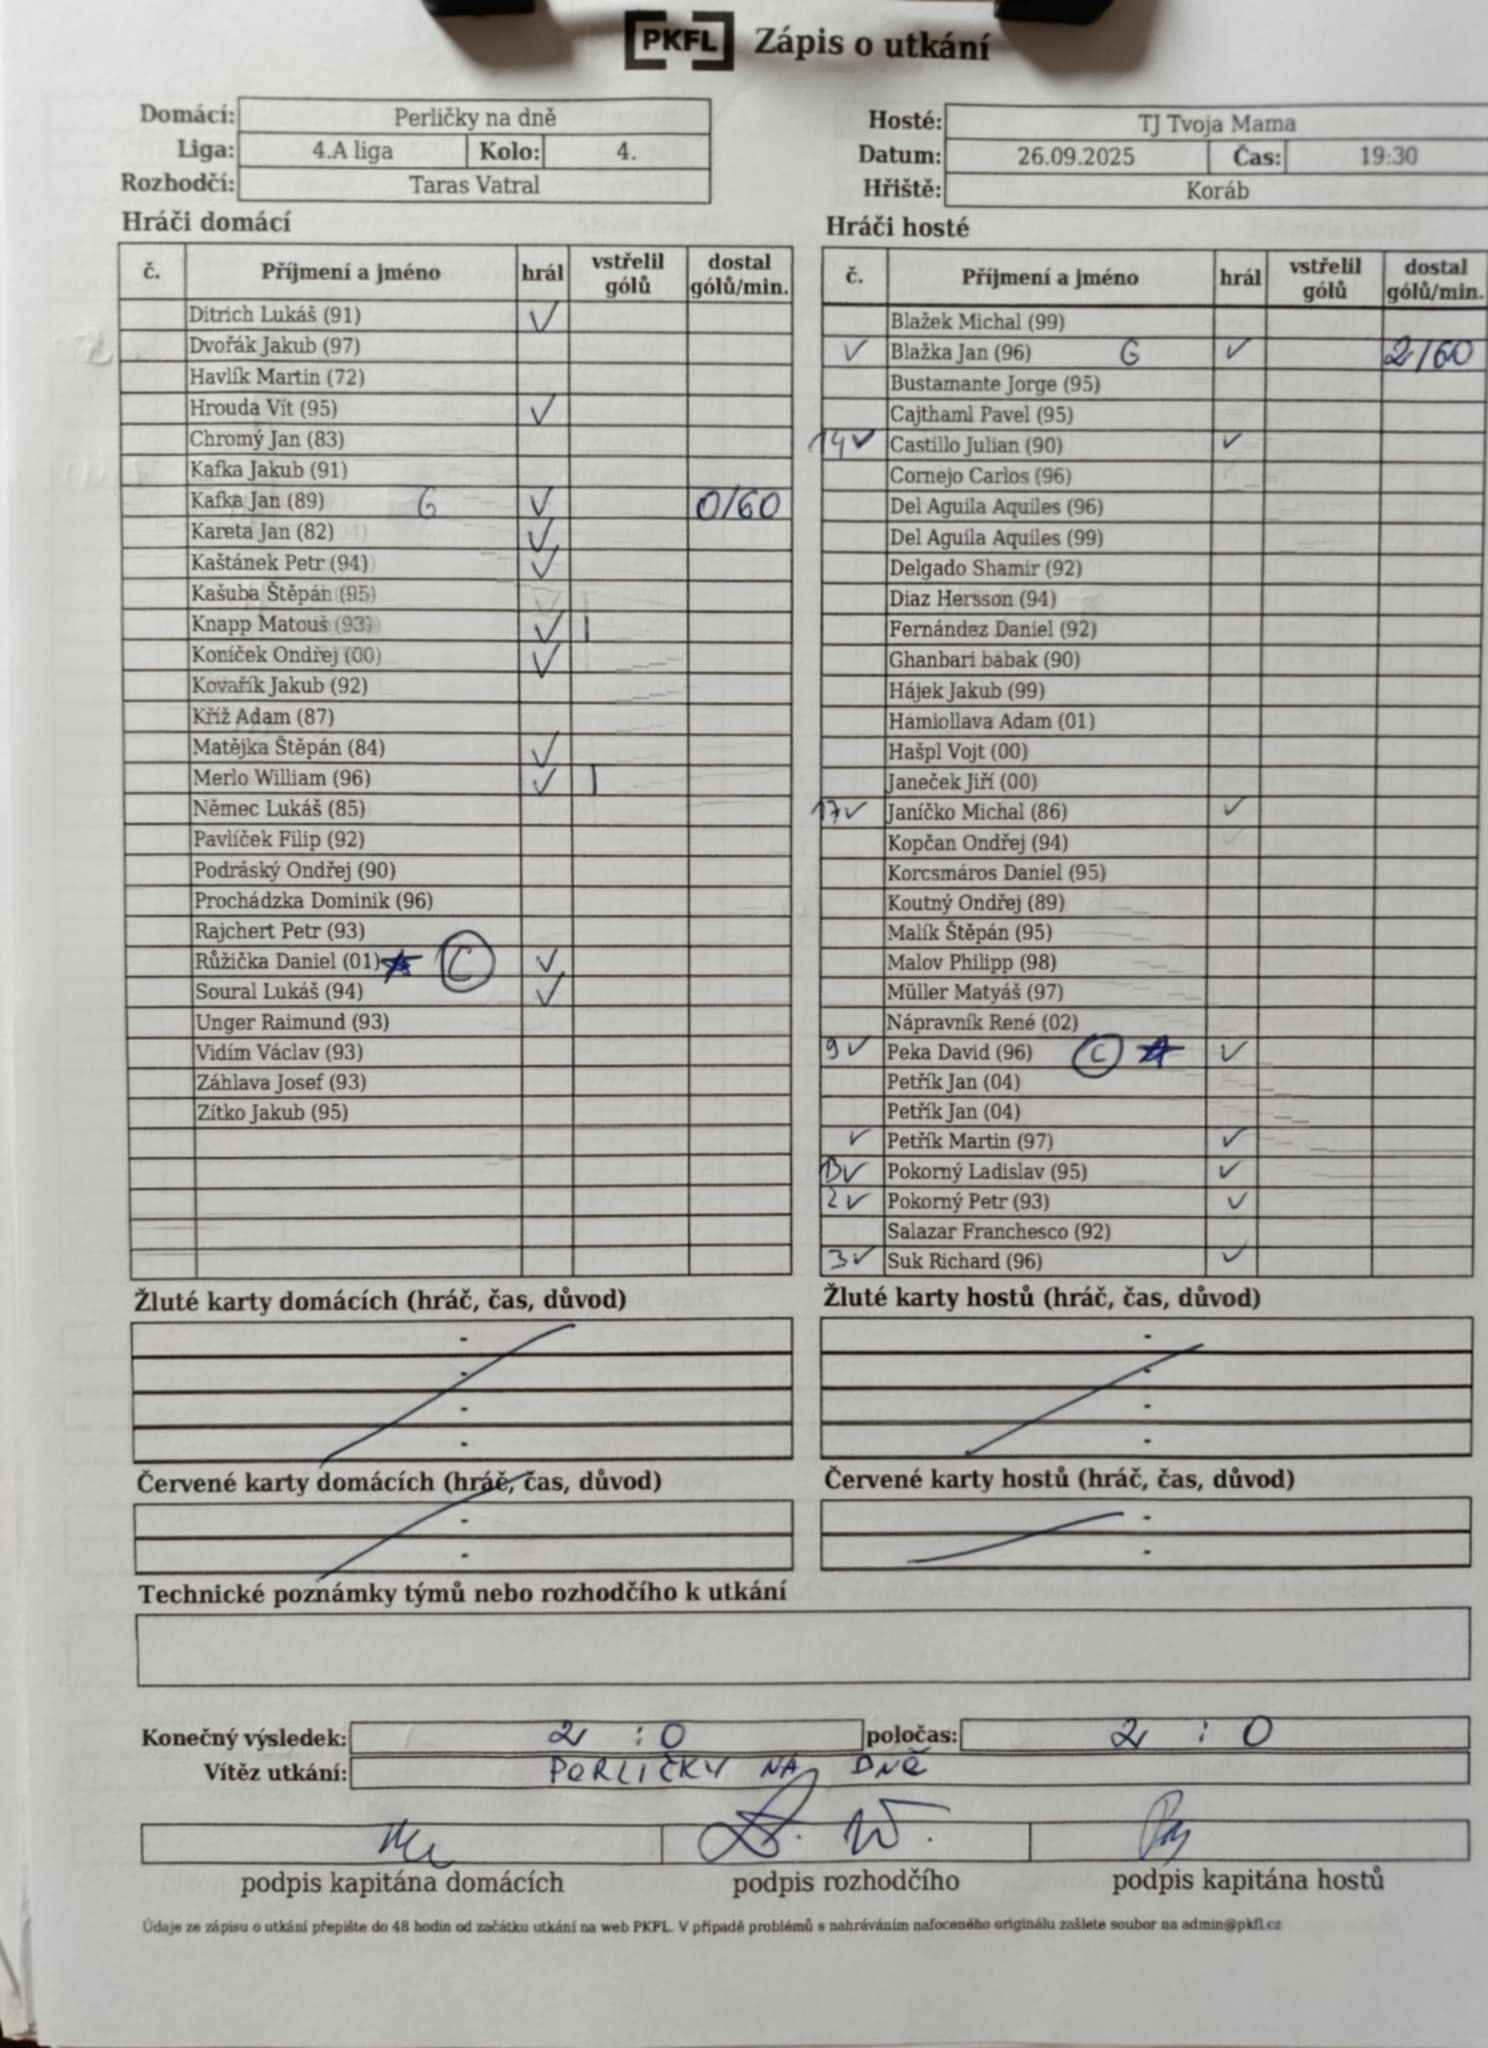 PKFL Zápis o utkání
Domácí: Perličky na dně
Liga: 4.A liga Kolo: 4.
Rozhodčí: Taras Vatral
Hosté: TJ Tvoja Mama
Datum: 26.09.2025 Čas: 19:30
Hřiště: Koráb
Hráči domácí
č. Příjmení a jméno hrál vstřelil gólů dostal gólů/min.
Ditrich Lukáš (91) ✓
Dvořák Jakub (97)
Havlík Martin (72)
Hrouda Vít (95) ✓
Chromý Jan (83)
Kafka Jakub (91)
Kafka Jan (89) G ✓ 0/60
Kareta Jan (82) ✓
Kaštánek Petr (94) ✓
Kašuba Štěpán (95)
Knapp Matouš (93) ✓ |
Koníček Ondřej (00) ✓
Kovařík Jakub (92)
Kříž Adam (87)
Matějka Štěpán (84) ✓
Merlo William (96) ✓ |
Němec Lukáš (85)
Pavlíček Filip (92)
Podráský Ondřej (90)
Prochádzka Dominik (96)
Rajchert Petr (93)
Růžička Daniel (01) ★ C ✓
Soural Lukáš (94) ✓
Unger Raimund (93)
Vidím Václav (93)
Záhlava Josef (93)
Zítko Jakub (95)
Hráči hosté
č. Příjmení a jméno hrál vstřelil gólů dostal gólů/min.
Blažek Michal (99)
✓ Blažka Jan (96) G ✓ 2/60
Bustamante Jorge (95)
Cajthaml Pavel (95)
14 ✓ Castillo Julian (90) ✓
Cornejo Carlos (96)
Del Aguila Aquiles (96)
Del Aguila Aquiles (99)
Delgado Shamir (92)
Diaz Hersson (94)
Fernández Daniel (92)
Ghanbari babak (90)
Hájek Jakub (99)
Hamiollava Adam (01)
Hašpl Vojt (00)
Janeček Jiří (00)
17 ✓ Janíčko Michal (86) ✓
Kopčan Ondřej (94)
Korcsmáros Daniel (95)
Koutný Ondřej (89)
Malík Štěpán (95)
Malov Philipp (98)
Müller Matyáš (97)
Nápravník René (02)
9 ✓ Peka David (96) C ★ ✓
Petřík Jan (04)
Petřík Jan (04)
✓ Petřík Martin (97) ✓
13 ✓ Pokorný Ladislav (95) ✓
2 ✓ Pokorný Petr (93) ✓
Salazar Franchesco (92)
3 ✓ Suk Richard (96) ✓
Žluté karty domácích (hráč, čas, důvod)
-
-
-
-
Žluté karty hostů (hráč, čas, důvod)
-
-
-
-
Červené karty domácích (hráč, čas, důvod)
-
-
Červené karty hostů (hráč, čas, důvod)
-
-
Technické poznámky týmů nebo rozhodčího k utkání
Konečný výsledek: 2 : 0 poločas: 2 : 0
Vítěz utkání: PERLIČKY NA DNĚ
podpis kapitána domácích podpis rozhodčího podpis kapitána hostů
Údaje ze zápisu o utkání přepište do 48 hodin od začátku utkání na web PKFL. V případě problémů s nahráváním nafoceného originálu zašlete soubor na admin@pkfl.cz